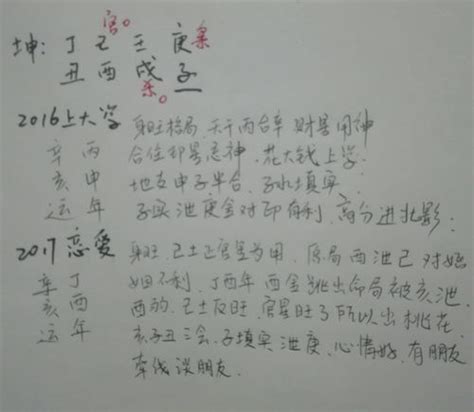 官。
坤：丁 己 壬 庚 枭
丑 酉 戌 子
杀。
2016上大学 身旺格局，天干丙合辛 财星用神
辛 丙 合住印星忌神，花大钱上学.
亥 申 地支申子半合，子水填实、
运 年 子实泄庚金对印有利，高分进北影.
2017恋爱 身旺，己土正官星为用，原局酉泄己对婚
辛 丁 姻不利，丁酉年酉金跳出命局被亥泄
亥 酉 酉的，己土反旺，官星旺了所以出桃花.
运 年 亥子丑三会，子填实泄庚，心情好，有朋友
牵线谈朋友.